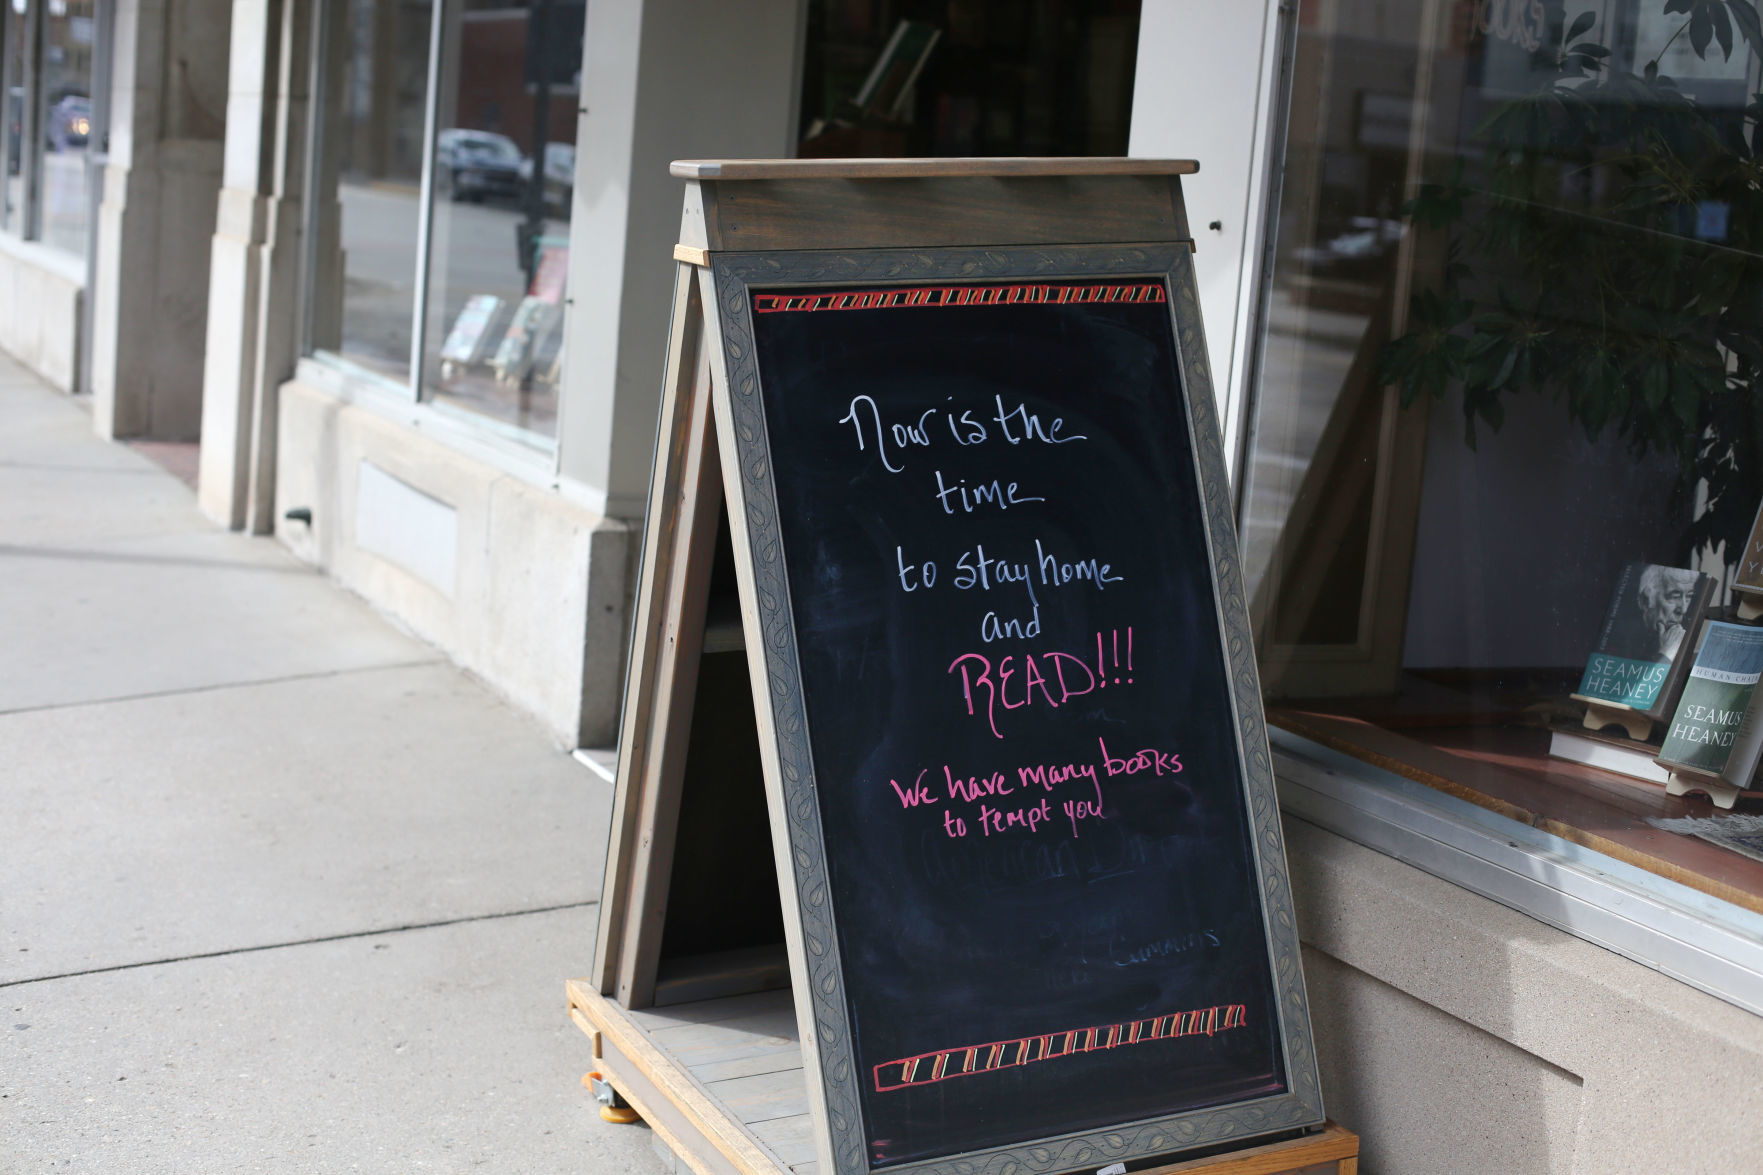 Now is the
time
to stay home
and
READ!!!
We have many books
to tempt you
American
Cummins
SEAMUS
HEANEY
HUMAN CHAI
SEAMUS
HEANEY